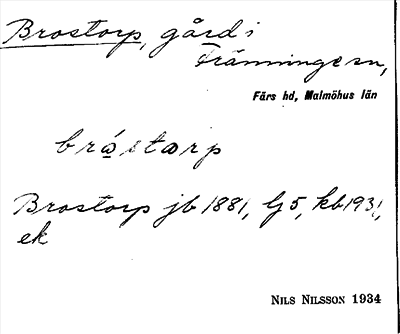 Brostorp, gård i
Tränninge sn,
Färs hd, Malmöhus län
bróstorp
Brostorp jb 1881, Lj 5, kb 1931,
ek
NILS NILSSON 1934